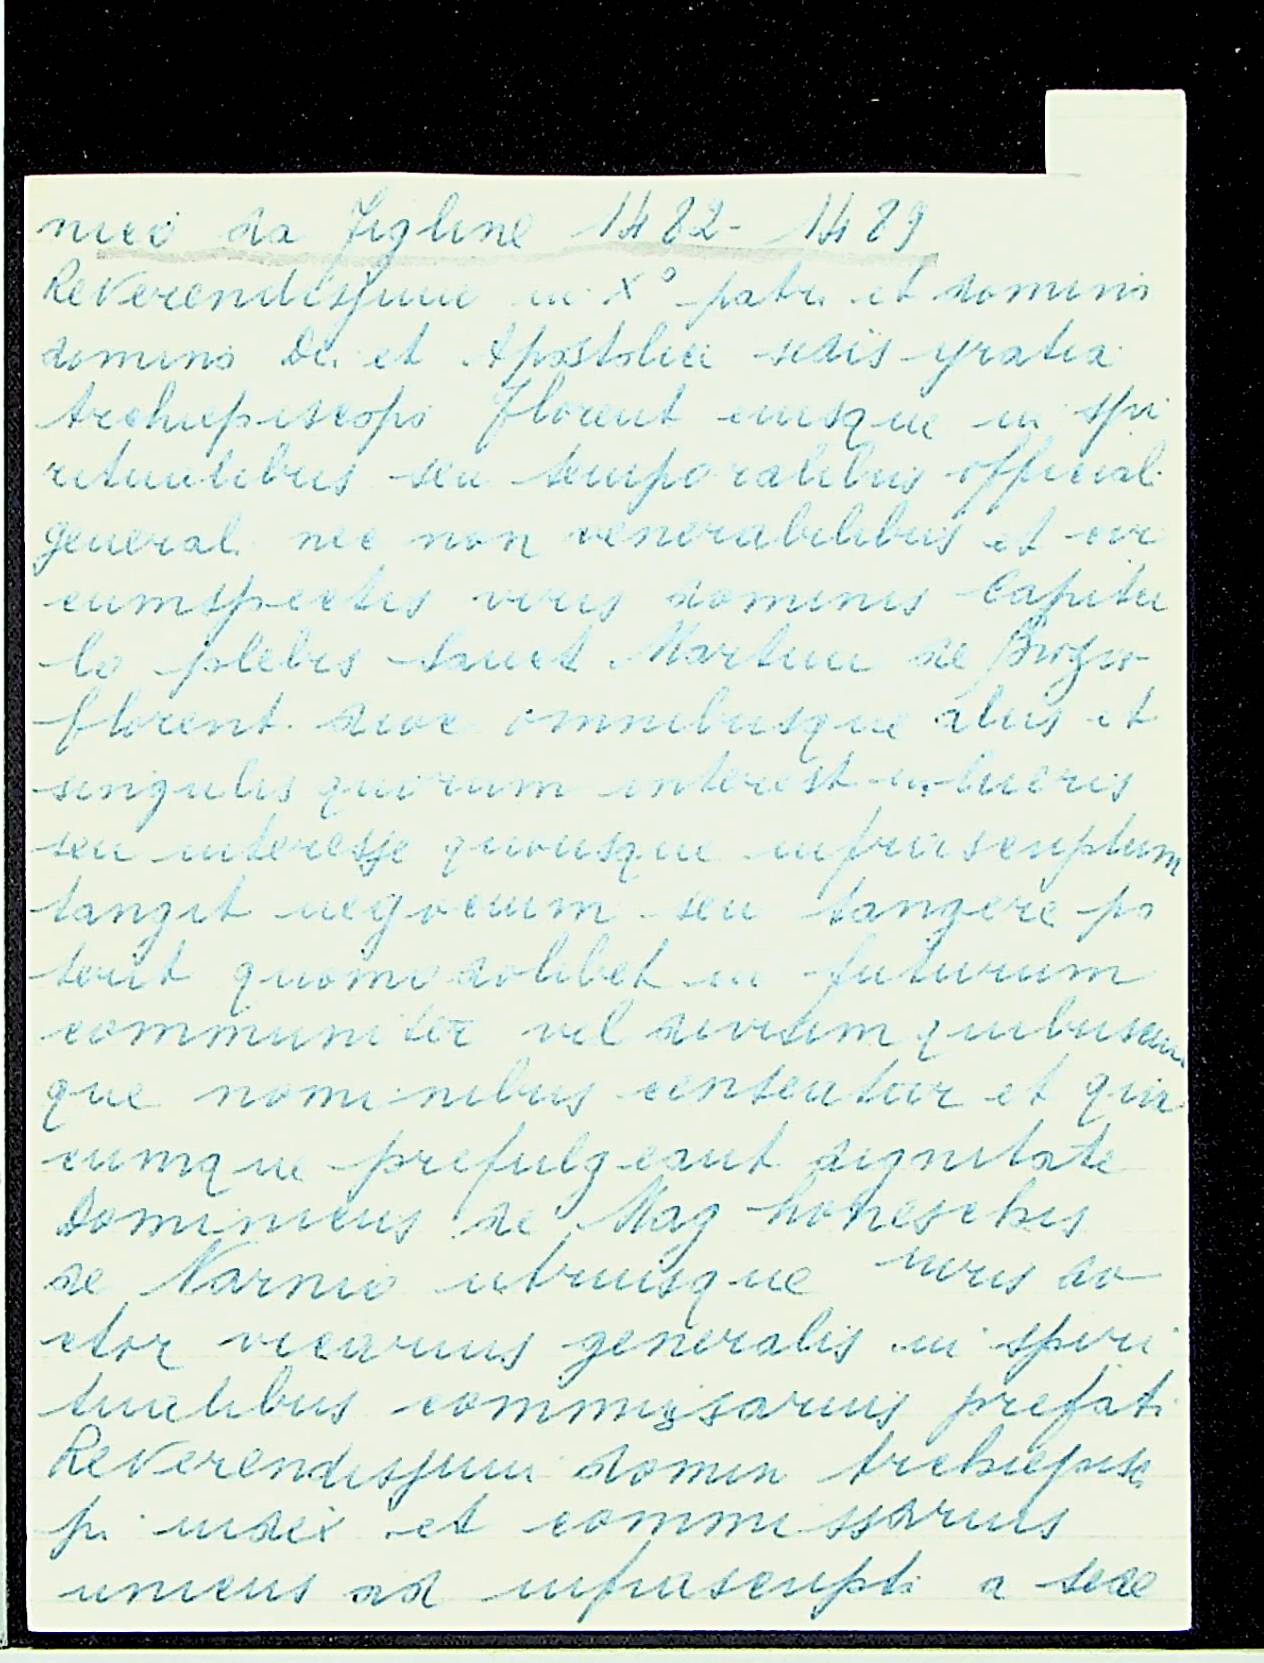 nico da Figline 1482-1489
Reverendissimi in X° patri et domini
domino Dei et Apostolici sedis gratia
Archiepiscopo Florent eiusque in spi
ritualibus seu temporalibus official
general. nec non venerabilibus et cir
cumspectis viris dominis Capitu
lo plebis Sanct Martini de
florent dioc omnibusque aliis et
singulis quorum interest
seu interesse quousque infrascriptum
tangit negocium seu tangere po
terit quomodolibet in futurum
communiter vel divisim quibuscun
que nominibus censeatur et qua
cumque prefulgeant dignitate
Dominicus de Mag
de Narnio utriusque iuris do
ctor vicarius generalis in spiri
tualibus commissarius prefati
Reverendissimi domin Archiepisc
pi iudex et commissarius
unicus ad infrascripti a sede